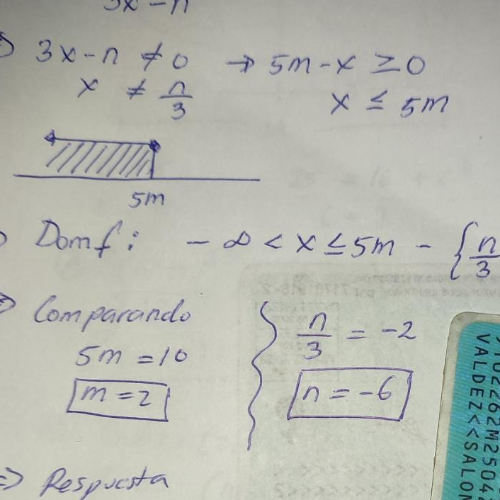 3x-n
3x-n ≠ 0 → 5m-x ≥ 0
x ≠ n/3
x ≤ 5m
5m
Domf: -∞ < x ≤ 5m - {n/3
Comparando
5m = 10
m = 2
n/3 = -2
n = -6
=> Respuesta
VALDEZ<<SALO